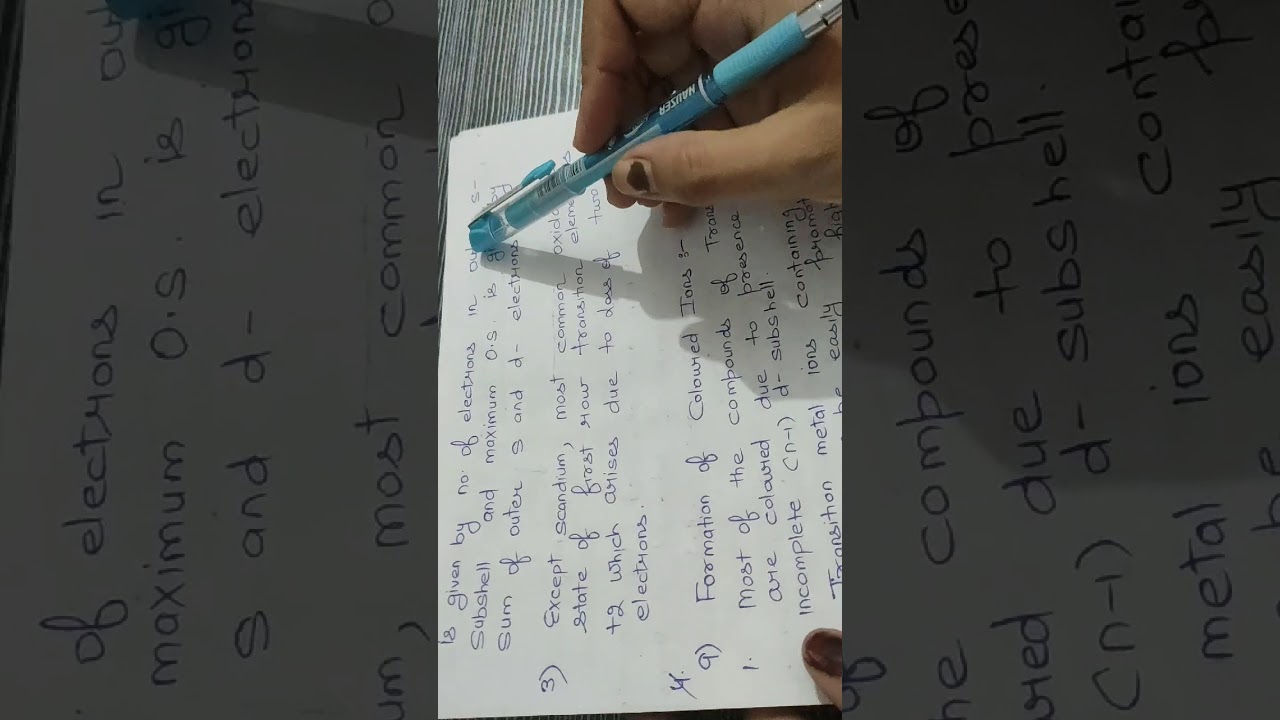 is given by no. of electrons in out s-
subshell and maximum O.S. is g by
sum of outer s and d- electrons
3) Except scandium, most common oxida
state of first row transition eleme s
+2 which arises due to loss of two
electrons.
4.
9) Formation of Coloured Ions :-
1. Most of the compounds of Trans
are coloured due to presence
incomplete (n-1) d- subshell.
Transition metal ions containing
be easily
HAUSER